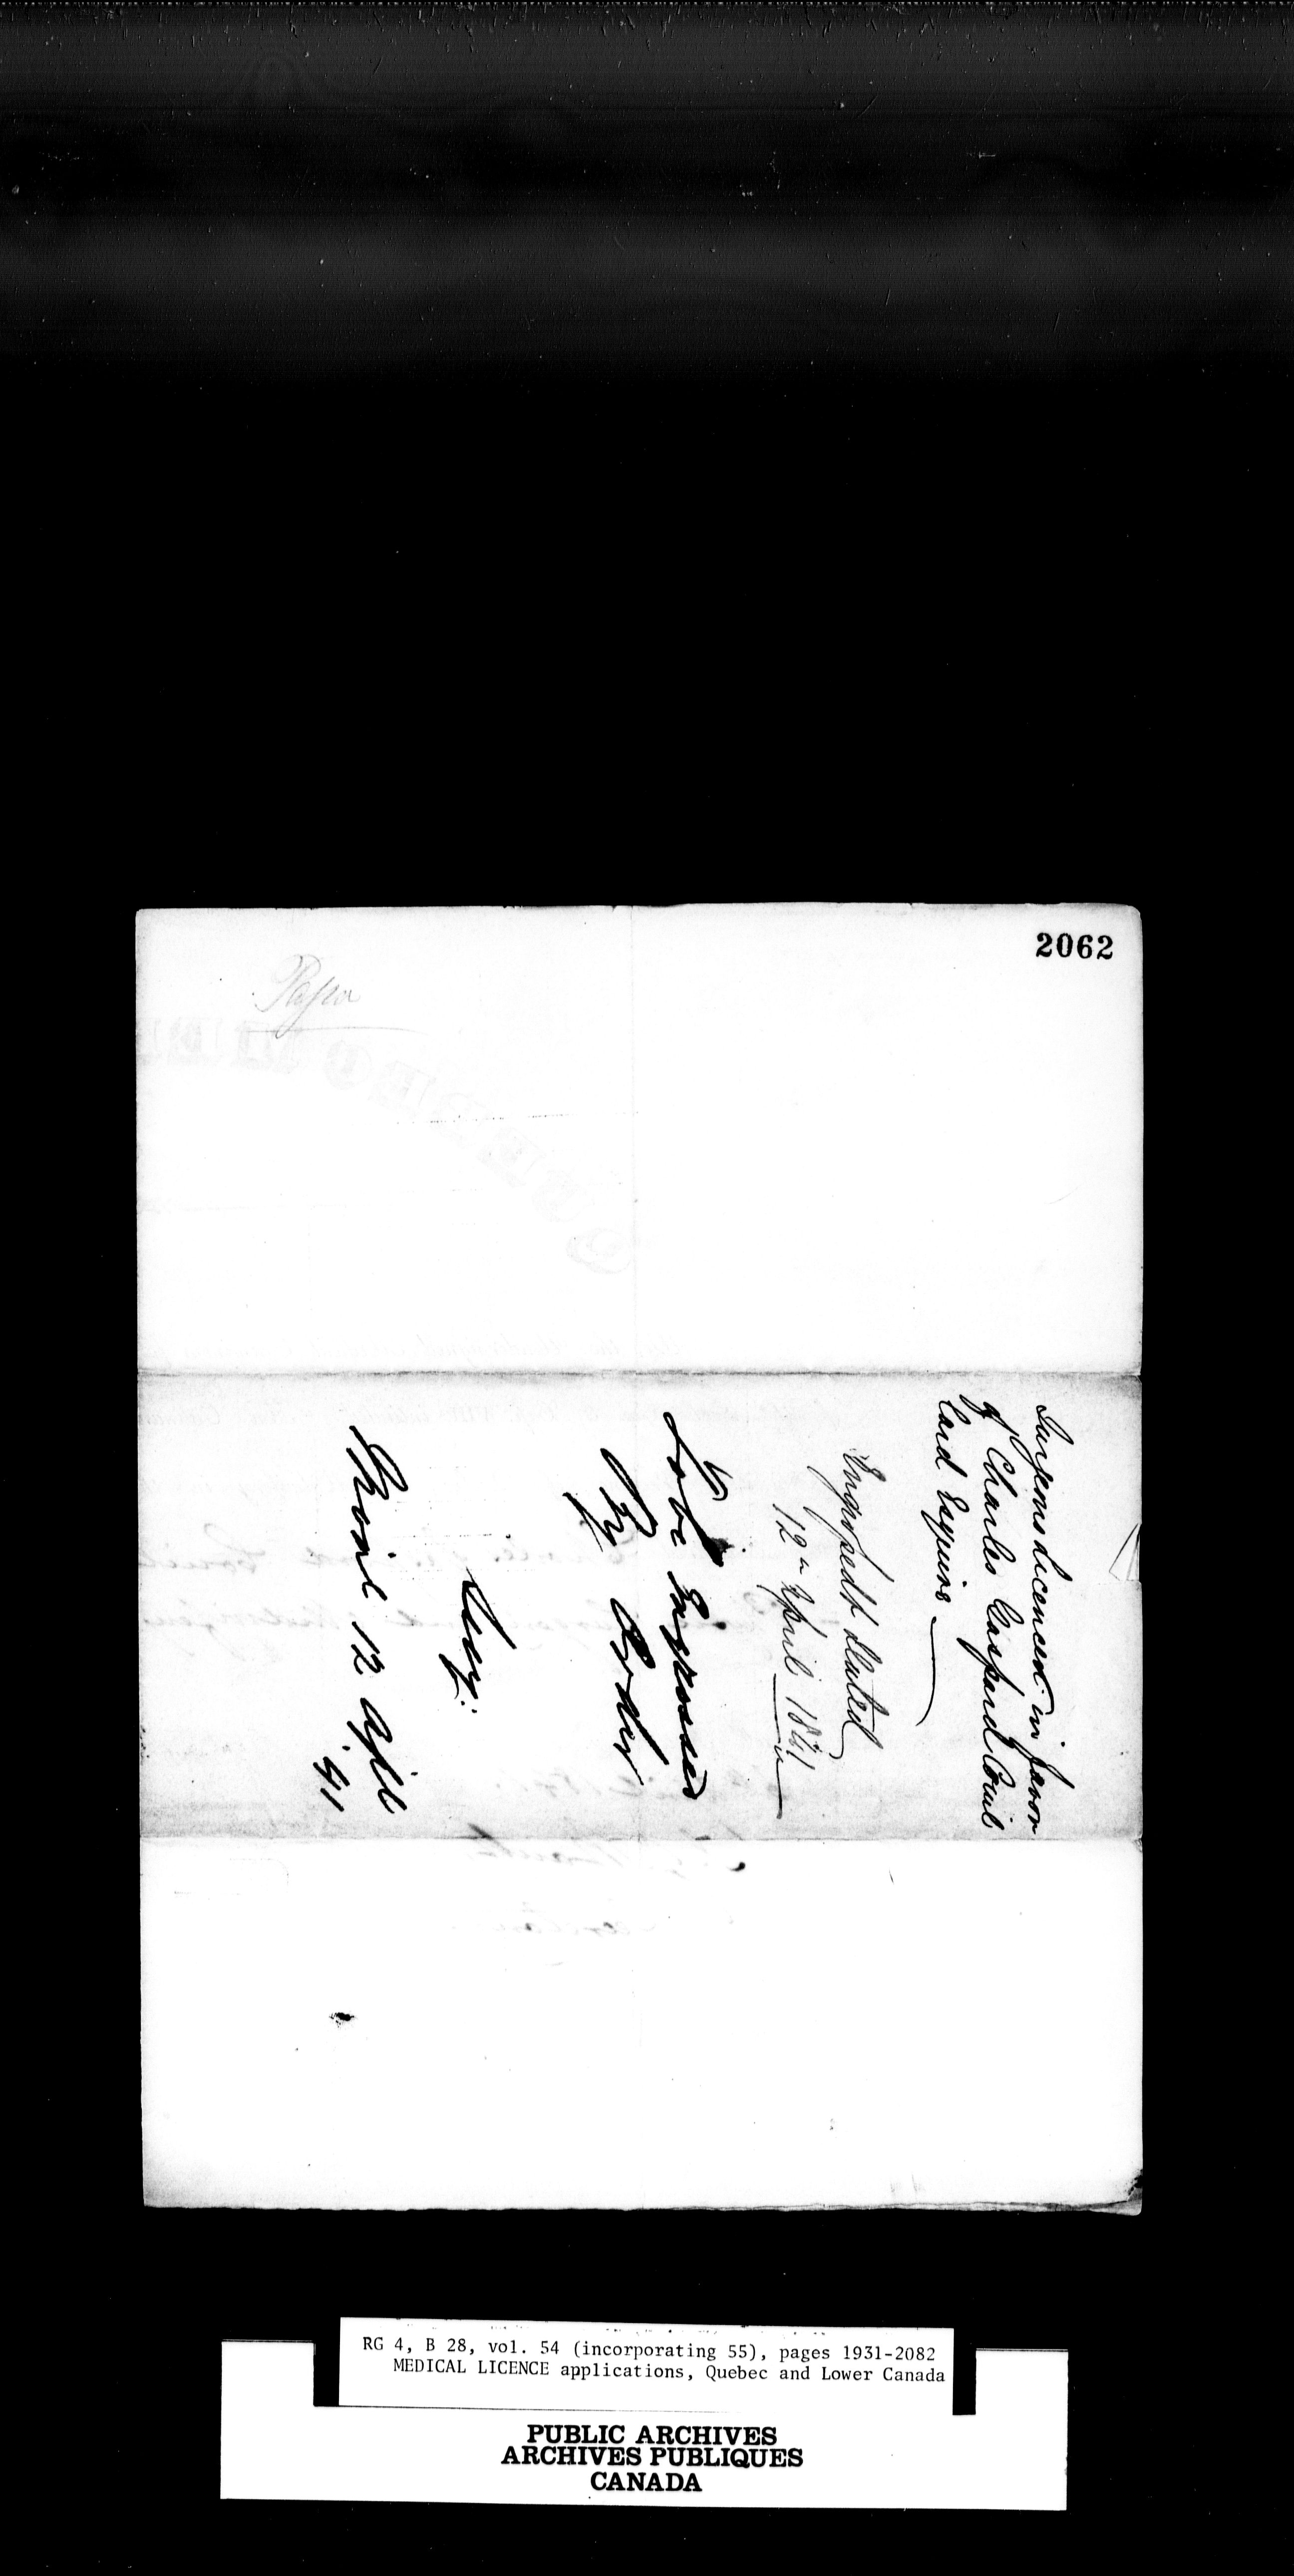 2062
Surgeons Licence in favor
of Charles Gaspard Couil
lard Esquire
Engrossed & dated
12th April 1841
To be Engrossed
By Order
Recd 12 Apl
'41
RG 4, B 28, vol. 54 (incorporating 55), pages 1931-2082
MEDICAL LICENCE applications, Quebec and Lower Canada
PUBLIC ARCHIVES
ARCHIVES PUBLIQUES
CANADA